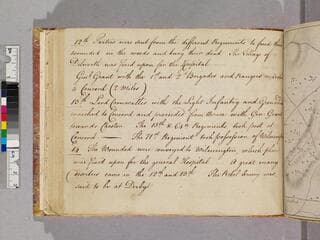 12th Parties were sent from the different Regiments to find the
wounded in the woods and bury their dead. The Village of
Dilworth was fixed upon for the Hospital
Genl Grant with the 1st and 2d Brigades and Rangers
to Concord (2 Miles)
13th Lord Cornwallis with the Light Infantry and
marched to Concord and proceeded from thence with Genl Grant
towards Chester. The Regiments took post at
Concord — The 71st Regiment took possession of Wilmington
14 The Wounded were conveyed to Wilmington, which place
was fixed upon for the general Hospital A great many
Deserters came in the 12th and 13th The Rebel Army was
said to be at Derby